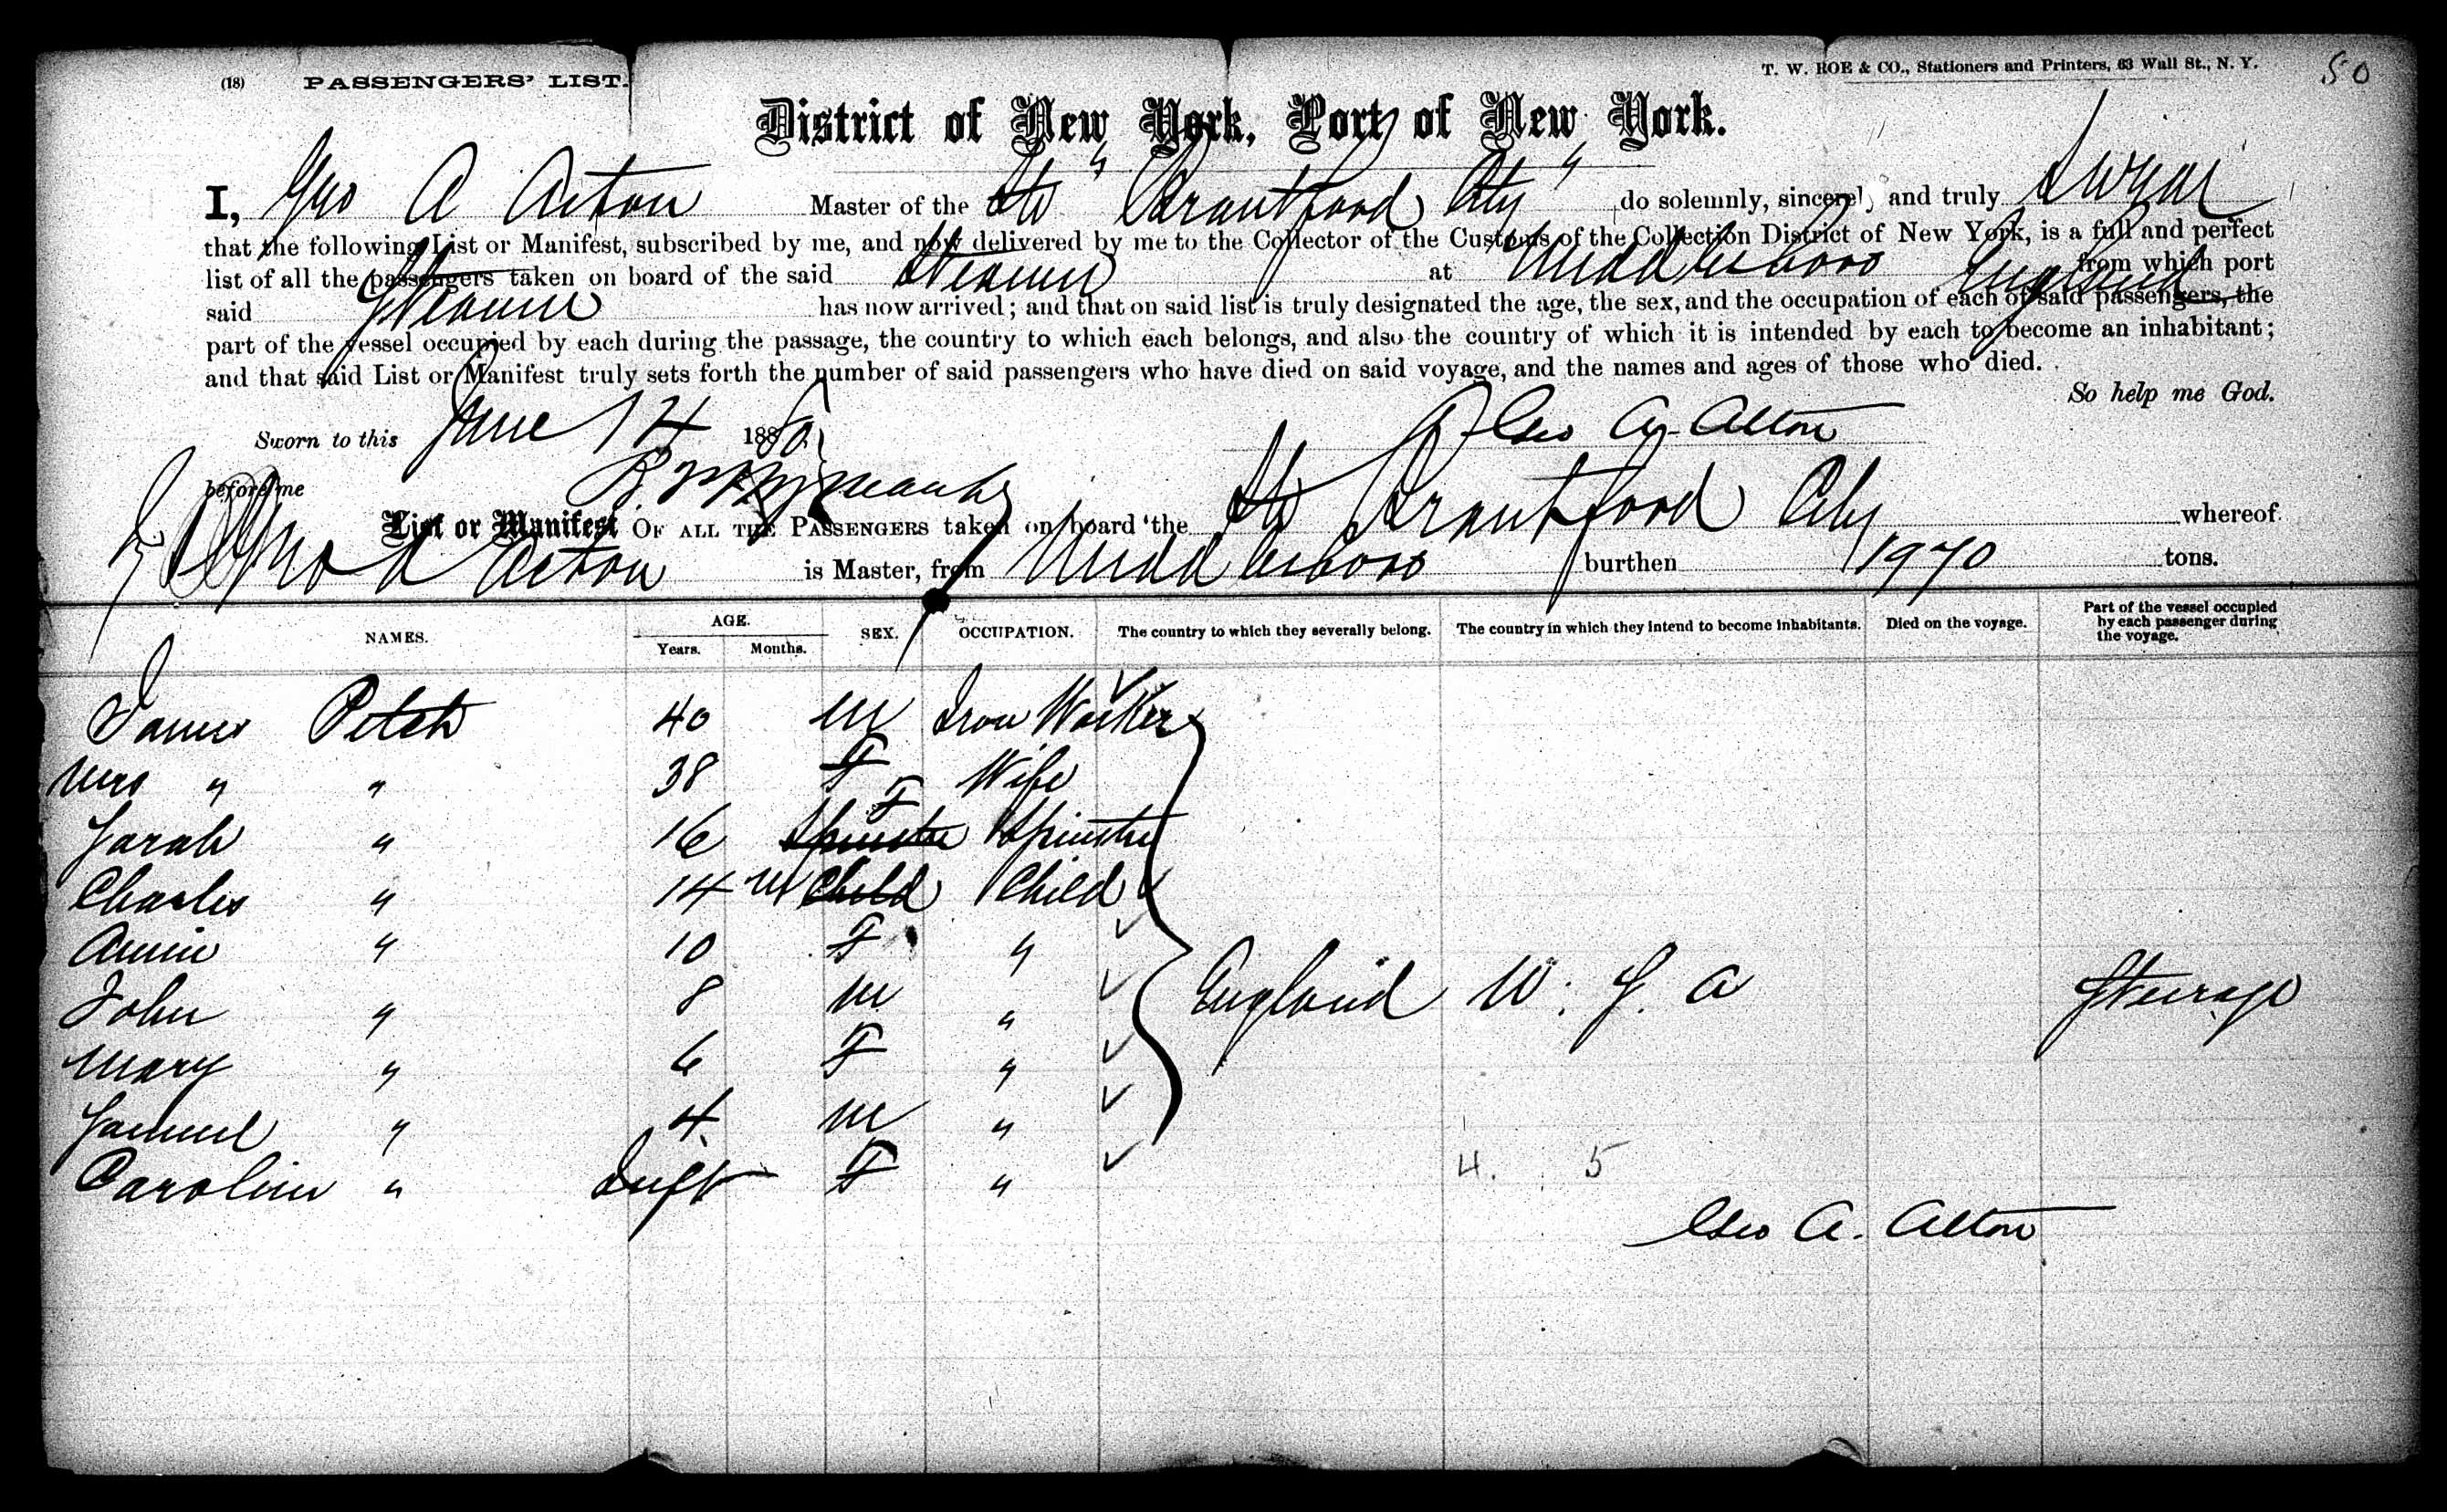 (18) PASSENGERS' LIST.
T. W. ROE & CO., Stationers and Printers, 63 Wall St., N. Y.
50
District of New York, Port of New York.
I, Geo A Acton Master of the Str "Brantford City" do solemnly, sincerely and truly Swear
that the following List or Manifest, subscribed by me, and now delivered by me to the Collector of the Customs of the Collection District of New York, is a full and perfect
list of all the passengers taken on board of the said Steamer at Middlesboro England from which port
said Steamer has now arrived; and that on said list is truly designated the age, the sex, and the occupation of each of said passengers, the
part of the vessel occupied by each during the passage, the country to which each belongs, and also the country of which it is intended by each to become an inhabitant;
and that said List or Manifest truly sets forth the number of said passengers who have died on said voyage, and the names and ages of those who died.
So help me God.
Sworn to this June 14 188 Geo A. Acton
before me
List or Manifest OF ALL THE PASSENGERS taken on board the Str Brantford City whereof
Geo A Acton is Master, from Middlesboro burthen 1970 tons.
NAMES. AGE. Years. Months. SEX. OCCUPATION. The country to which they severally belong. The country in which they intend to become inhabitants. Died on the voyage. Part of the vessel occupied by each passenger during the voyage.
James Petch 40 M Iron Worker
Mrs " " 38 F Wife
Sarah " 16 Spinster F Spinster
Charles " 14 M Child Child
Annie " 10 F "
John " 8 M " England U. S. A Steerage
Mary " 6 F "
Samuel " 4 M "
Caroline " Inft F "
4. 5
Geo A. Acton